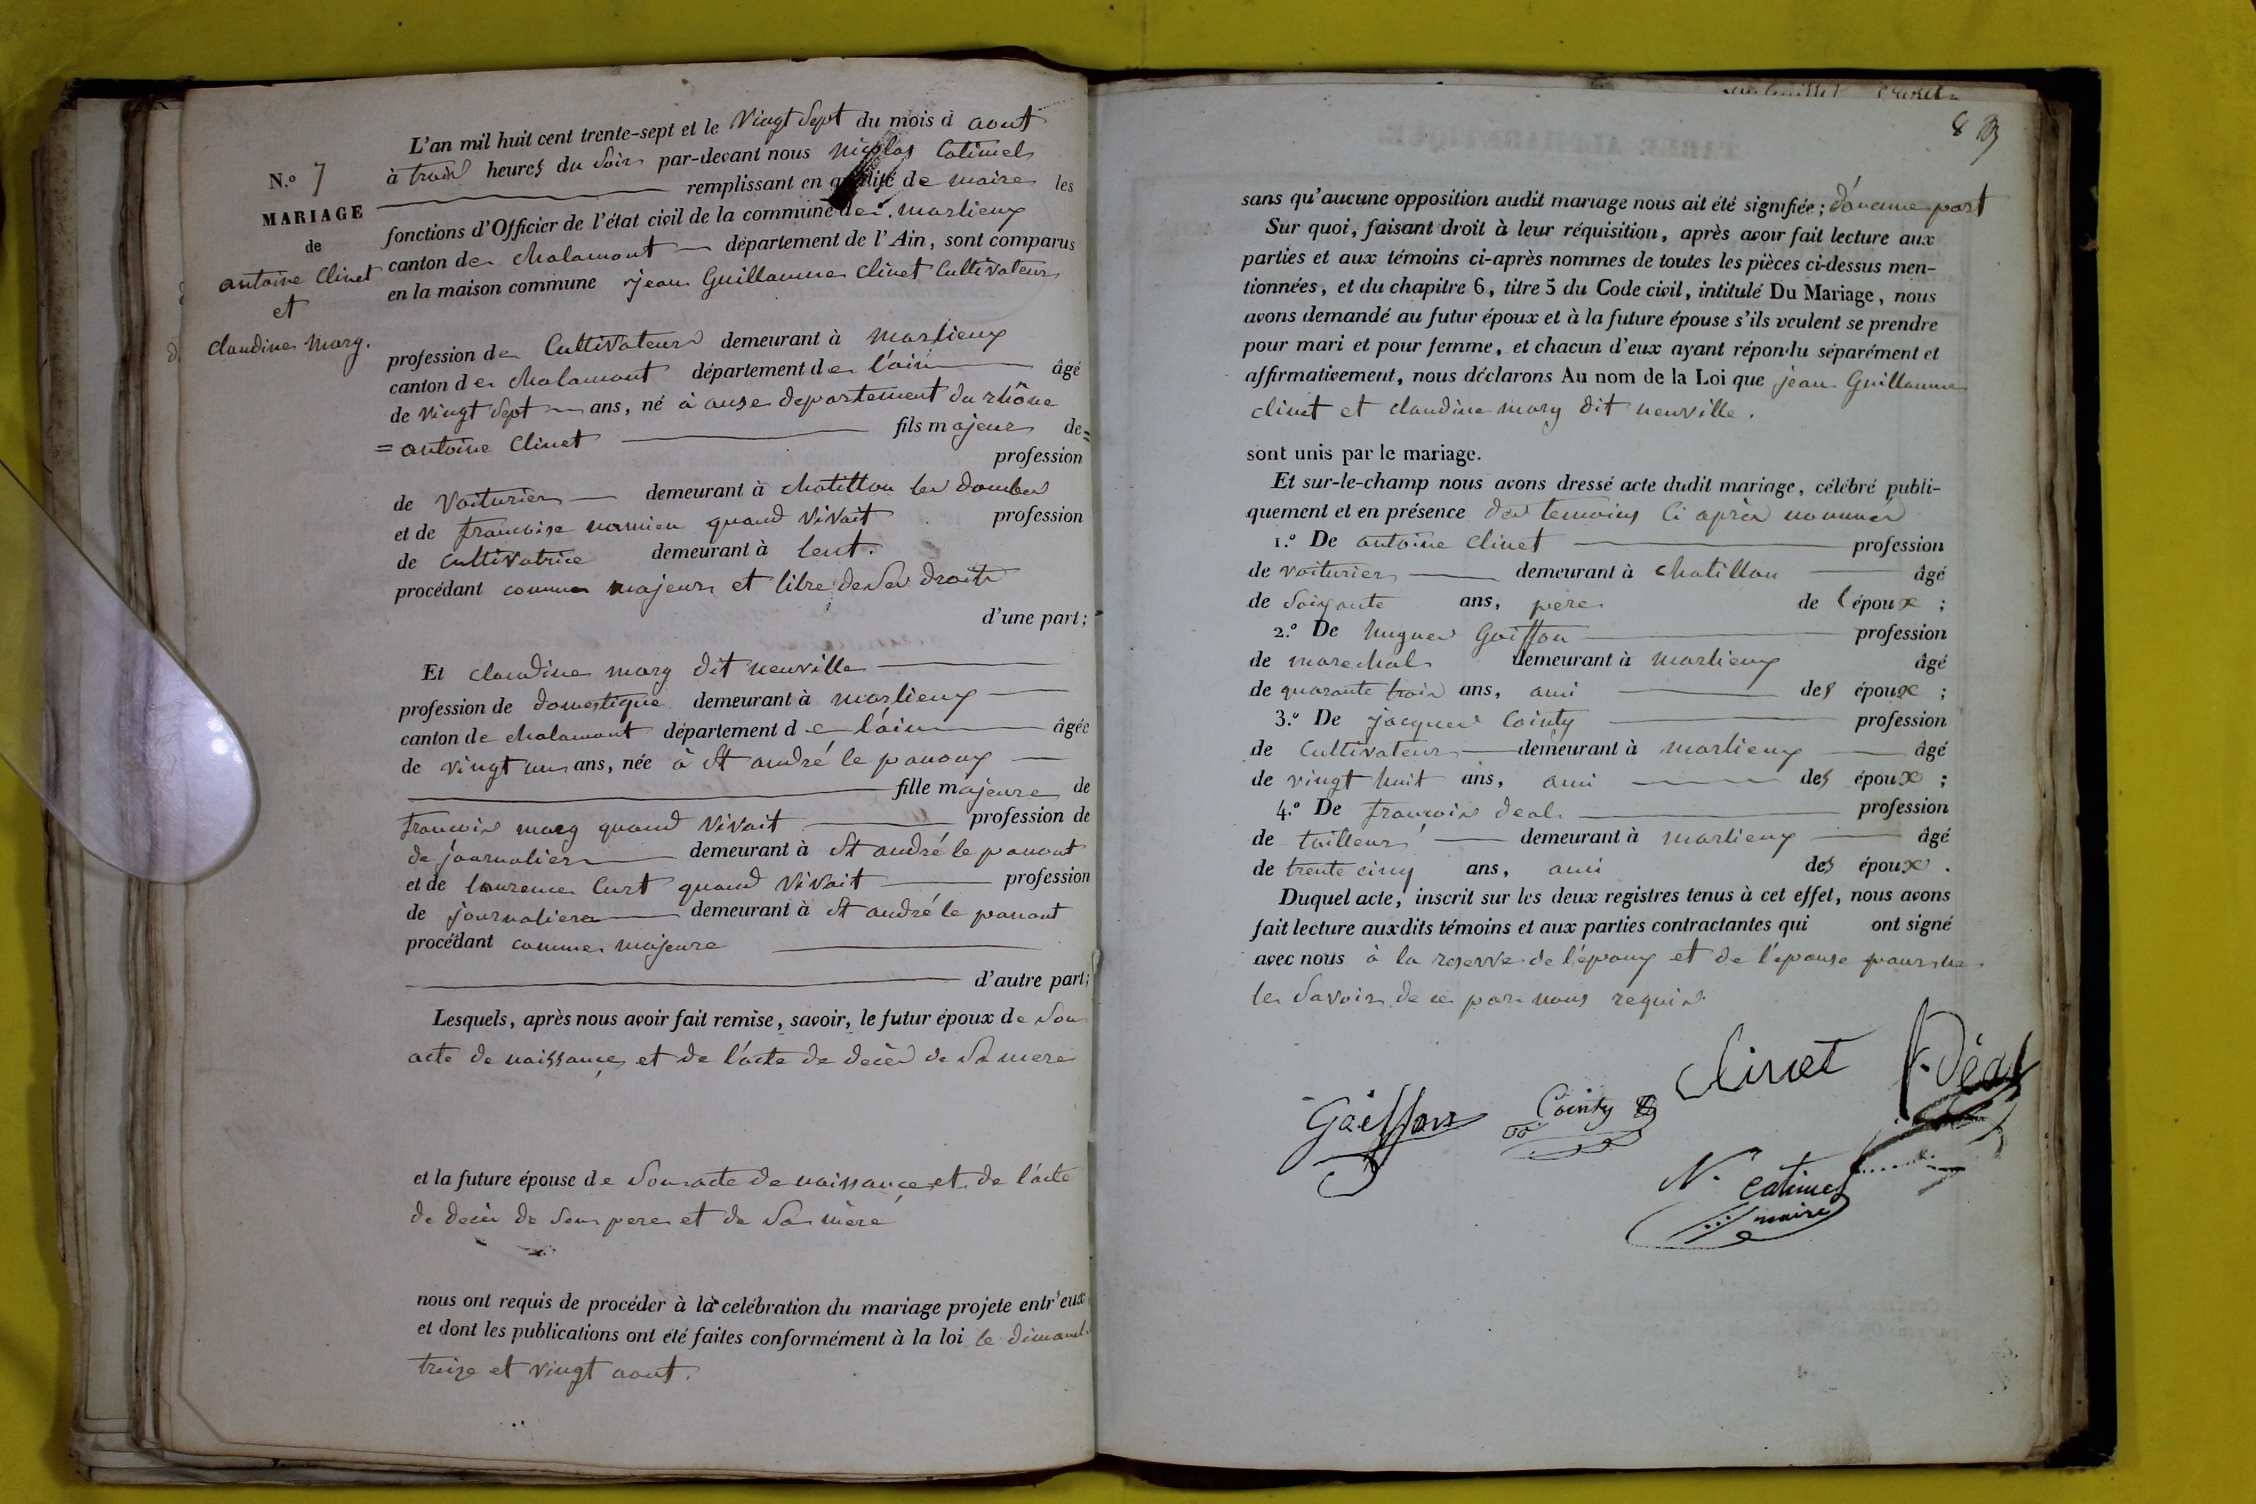 N.º 7
MARIAGE
de
antoine Clinet
et
claudine marg.
L'an mil huit cent trente-sept et le vingt Sept du mois d aout
à trois heures du Soir par-devant nous nicolas Catimel
remplissant en qualité de maire les
fonctions d'Officier de l'état civil de la commune de marlieux
canton de chalamont département de l'Ain, sont comparus
en la maison commune jean Guillaume Clinet Cultivateur
profession de Cultivateur demeurant à marlieux
canton de chalamont département de l'ain âgé
de vingt Sept ans, né à anse departement du rhône
fils majeur de =
= antoine Clinet
profession
de Voiturier demeurant à chatillon les dombes
et de francoise namien quand vivait profession
de cultivatrice demeurant à lent.
procédant comme majeur et libre de Ses droits
d'une part;
Et claudine marg dit neuville
profession de domestique demeurant à marlieux
canton de chalamont département de l'ain âgée
de vingt un ans, née à St andré le panoux
fille majeure de
francois marg quand vivait profession de
de journalier demeurant à St andré le panout
et de laurence Curt quand vivait profession
de journaliere demeurant à St andré le panout
procédant comme majeure
d'autre part;
Lesquels, après nous avoir fait remise, savoir, le futur époux de Son
acte de naissance et de l'acte de decès de Sa mere
et la future épouse de Son acte de naissance et de l'acte
de decès de Son pere et de Sa mère
nous ont requis de procéder à la celébration du mariage projete entr'eux
et dont les publications ont été faites conformément à la loi le dimanch
treize et vingt aout.
sans qu'aucune opposition audit mariage nous ait été signifiée; d'aucune part
Sur quoi, faisant droit à leur réquisition, après avoir fait lecture aux
parties et aux témoins ci-après nommes de toutes les pièces ci-dessus men-
tionnées, et du chapitre 6, titre 5 du Code civil, intitulé Du Mariage, nous
avons demandé au futur époux et à la future épouse s'ils veulent se prendre
pour mari et pour femme, et chacun d'eux ayant répondu séparément et
affirmativement, nous déclarons Au nom de la Loi que jean Guillaume
clinet et claudine marg dit neuville.
sont unis par le mariage.
Et sur-le-champ nous avons dressé acte dudit mariage, célébré publi-
quement et en présence des temoins Ci après nommés
1.º De antoine Clinet profession
de voiturier demeurant à chatillon âgé
de Soixante ans, pere de l époux ;
2.º De hugues Goiffon profession
de marechal demeurant à marlieux âgé
de quarante trois ans, ami des époux ;
3.º De jacques Cointy profession
de Cultivateur demeurant à marlieux âgé
de vingt huit ans, ami des époux ;
4.º De francois deal profession
de tailleur demeurant à marlieux âgé
de trente cinq ans, ami des époux .
Duquel acte, inscrit sur les deux registres tenus à cet effet, nous avons
fait lecture auxdits témoins et aux parties contractantes qui ont signé
avec nous à la reserve de l'époux et de l'épouse pour ne
le Savoir de ce par nous requis
Clinet F. Déal
Goiffon Cointy
N. Catimel
maire